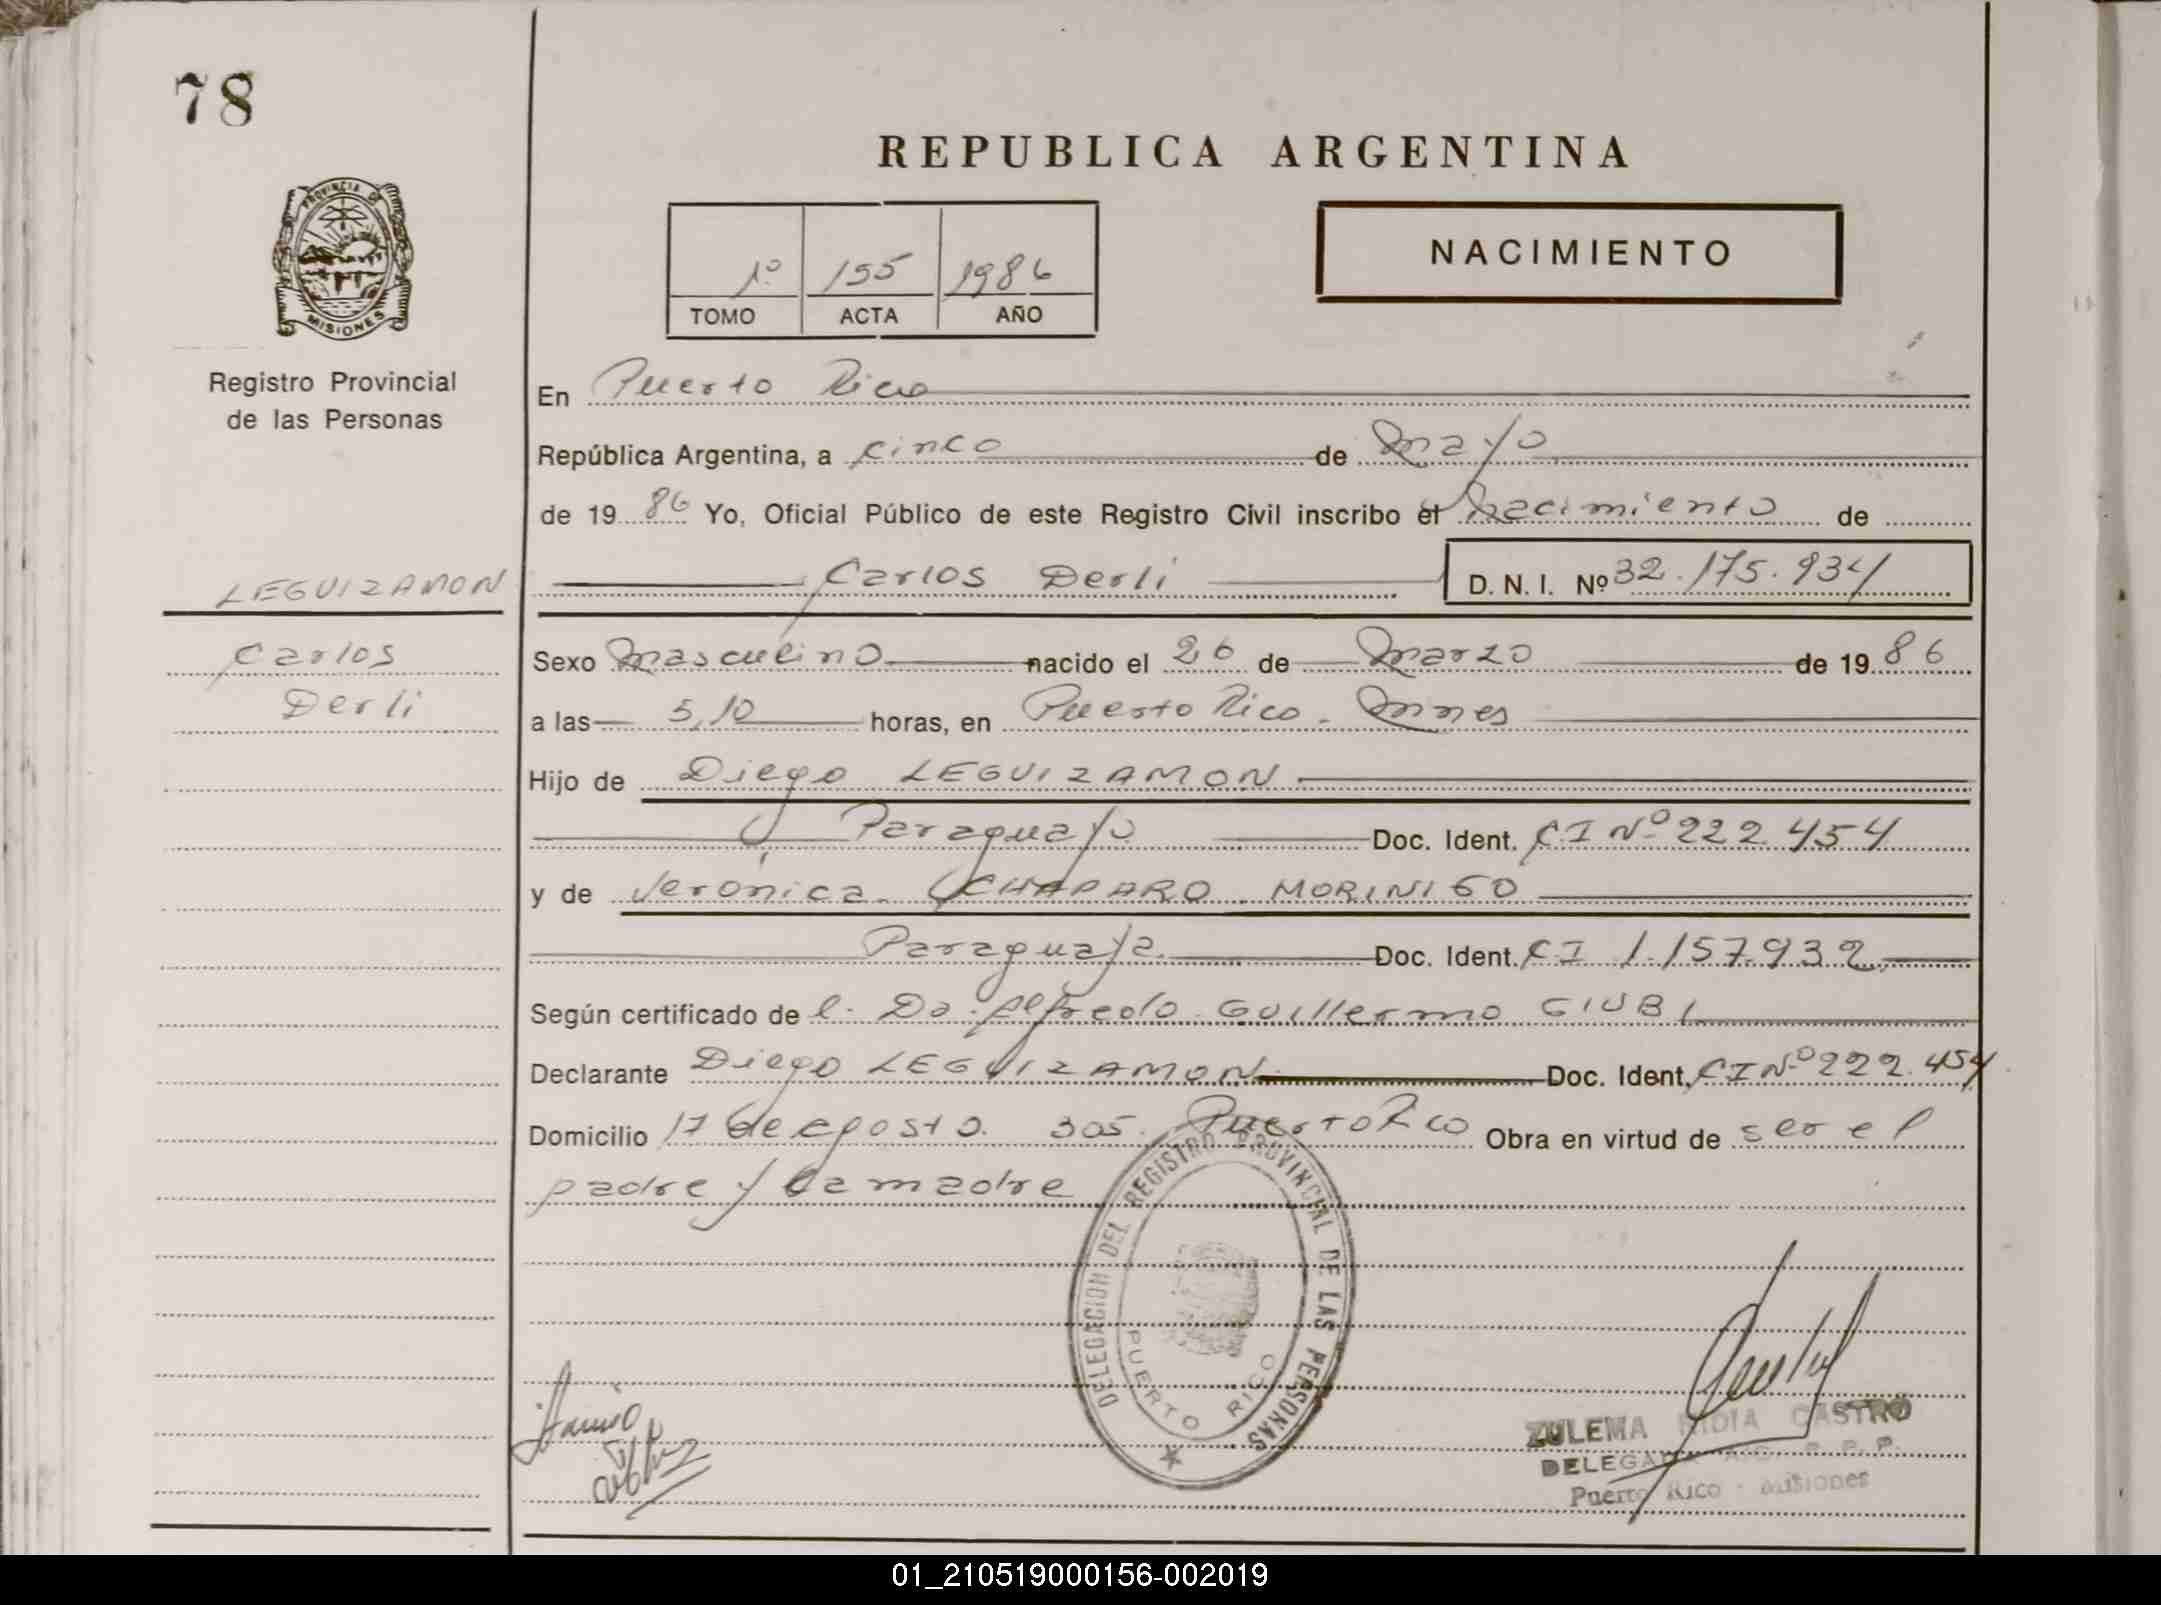 78
REPUBLICA ARGENTINA
PROVINCIA DE
MISIONES
NACIMIENTO
1º 155 1986
TOMO ACTA AÑO
Registro Provincial
de las Personas
En Puerto Rico
República Argentina, a cinco de Mayo
de 19 86 Yo, Oficial Público de este Registro Civil inscribo el Nacimiento de
LEGUIZAMON
Carlos Derli D. N. I. Nº 32.175.934
Carlos
Derli
Sexo Masculino nacido el 26 de Marzo de 19 86
a las 5,10 horas, en Puerto Rico. Mnes
Hijo de Diego LEGUIZAMON
Paraguayo Doc. Ident. CI Nº 222.454
y de Verónica CHAPARO MORINIGO
Paraguaya Doc. Ident. CI 1.157.932
Según certificado de l. Do. Alfredo Guillermo GIUBI
Declarante Diego LEGUIZAMON Doc. Ident. CI Nº 222.454
Domicilio 17 de agosto 305. Puerto Rico Obra en virtud de ser el
padre y la madre
DELEGACION DEL REGISTRO PROVINCIAL DE LAS PERSONAS
PUERTO RICO
ZULEMA NIDIA CASTRO
DELEGADA R. P. P.
Puerto Rico - Misiones
01_210519000156-002019